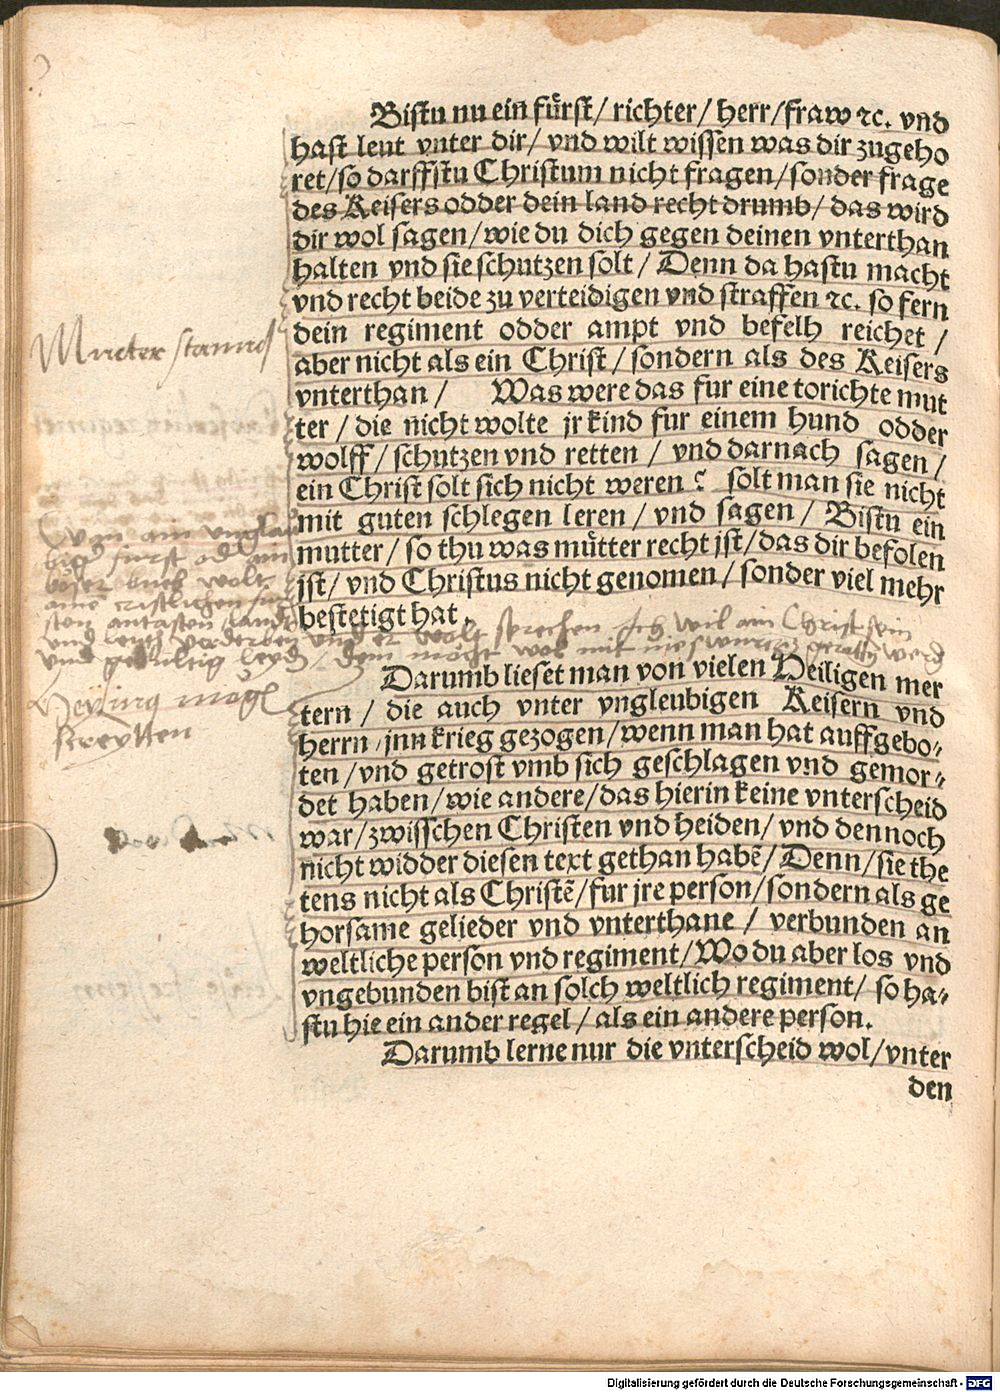 Bistu nu ein fürst/ richter/ herr/ fraw ꝛc. vnd
hast leut vnter dir/ vnd wilt wissen was dir zugeho
ret/ so darffstu Christum nicht fragen/ sonder frage
des Keisers odder dein land recht drumb/ das wird
dir wol sagen/ wie du dich gegen deinen vnterthan
halten vnd sie schutzen solt/ Denn da hastu macht
vnd recht beide zu verteidigen vnd straffen ꝛc. so fern
dein regiment odder ampt vnd befelh reichet /
aber nicht als ein Christ/ sondern als des Keisers
vnterthan / Was were das fur eine torichte mut
ter / die nicht wolte jr kind fur einem hund odder
wolff/ schutzen vnd retten / vnd darnach sagen /
ein Christ solt sich nicht weren ? solt man sie nicht
mit guten schlegen leren / vnd sagen / Bistu ein
mutter/ so thu was mütter recht ist/ das dir befolen
ist/ vnd Christus nicht genomen/ sonder viel mehr
bestetigt hat.
Darumb lieset man von vielen Heiligen mer
tern / die auch vnter vngleubigen Keisern vnd
herrn jnn krieg gezogen/ wenn man hat auffgebo⸗
ten / vnd getrost vmb sich geschlagen vnd gemor⸗
det haben/ wie andere/ das hierin keine vnterscheid
war/ zwisschen Christen vnd heiden/ vnd dennoch
nicht widder diesen text gethan habē/ Denn/ sie the
tens nicht als Christē/ fur jre person/ sondern als ge
horsame gelieder vnd vnterthane / verbunden an
weltliche person vnd regiment/ Wo du aber los vnd
vngebunden bist an solch weltlich regiment/ so ha⸗
stu hie ein ander regel / als ein andere person.
Darumb lerne nur die vnterscheid wol/ vnter
den
Mueter stannd
ain vngla
big furst od ain
wolt
ainē cristlichen fur
sten antasten land
vnd leuth verderben vnd er wolt sprechen Ich wil ain Christ sein
vnd gedultig leyd dem mocht wol mit werd
Heyling mogē
streytten
Digitalisierung gefördert durch die Deutsche Forschungsgemeinschaft - DFG